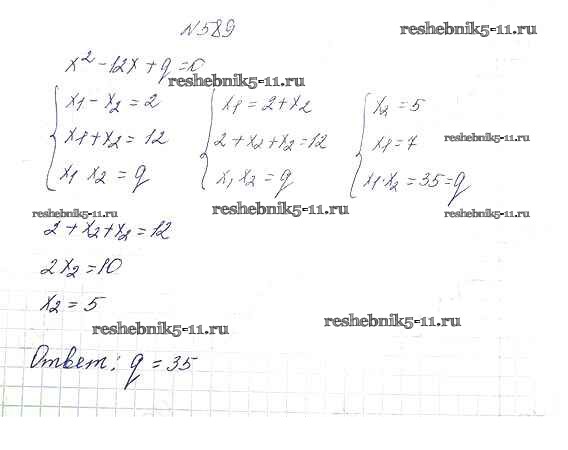 №589
reshebnik5-11.ru
x² - 12x + q = 0
reshebnik5-11.ru
x1 - x2 = 2
x1 + x2 = 12
x1 x2 = q
x1 = 2 + x2
2 + x2 + x2 = 12
x1 x2 = q
x2 = 5
x1 = 7
x1·x2 = 35 = q
reshebnik5-11.ru
reshebnik5-11.ru
reshebnik5-11.ru
reshebnik5-11.ru
2 + x2 + x2 = 12
2x2 = 10
x2 = 5
reshebnik5-11.ru
reshebnik5-11.ru
Ответ: q = 35